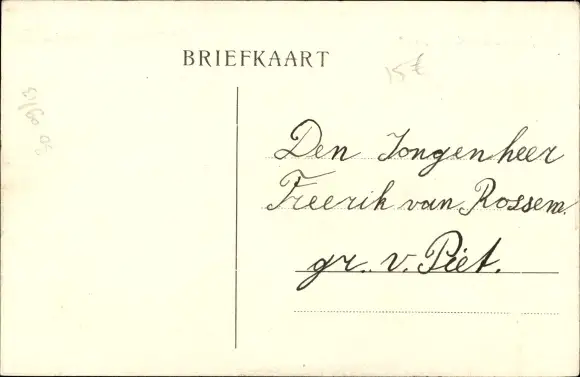 BRIEFKAART
15 €
Den Jongenheer
Freerik van Rossem.
gr. v. Piet.